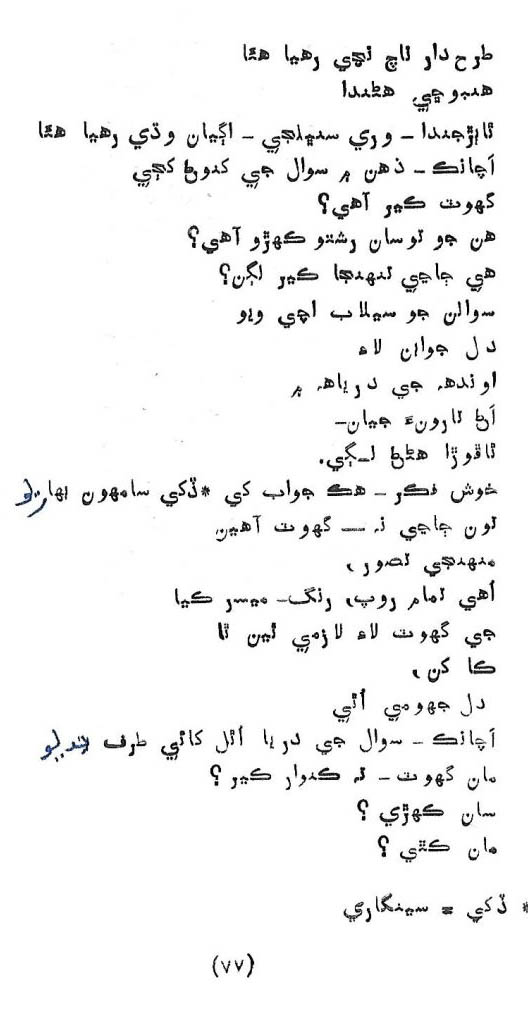 طرح دار ناچ نچي رهيا هئا
هنبوڇي، هڻندا
ٿاٻڙجندا - وري سنڀلجي - اڳيان وڌي رهيا هئا
اَچانڪ - ذهن ۾ سوال جي کنوڻ کڄي
گهوٽ ڪير آهي؟
هن جو توسان رشتو ڪهڙو آهي؟
هي ڄاڃي تنهنجا ڪير لڳن؟
سوالن جو سيلاب اچي ويو
دل جوابن لاءِ
اوندهه جي درياهه ۾
اَڻ تارونءَ جيان-
ٿاقوڙا هڻڻ لڳي.
خوش فڪر - هڪ جواب کي *ڏڪي سامهون بهاريو
تون ڄاڃي نہ — گهوٽ آهين
منهنجي تصور،
اُهي تمام روپ، رنگ- ميسر ڪيا
جي گهوٽ لاءِ لازمي ٿين ٿا
ڪا کن،
دل جهومي اُٿي
اَچانڪ - سوال جي دريا اُٿل کائي طرف
مان گهوٽ - تہ ڪنوار ڪير؟
سان ڪهڙي؟
مان ڪٿي؟
* ڏڪي = سينگاري
(٧٧)